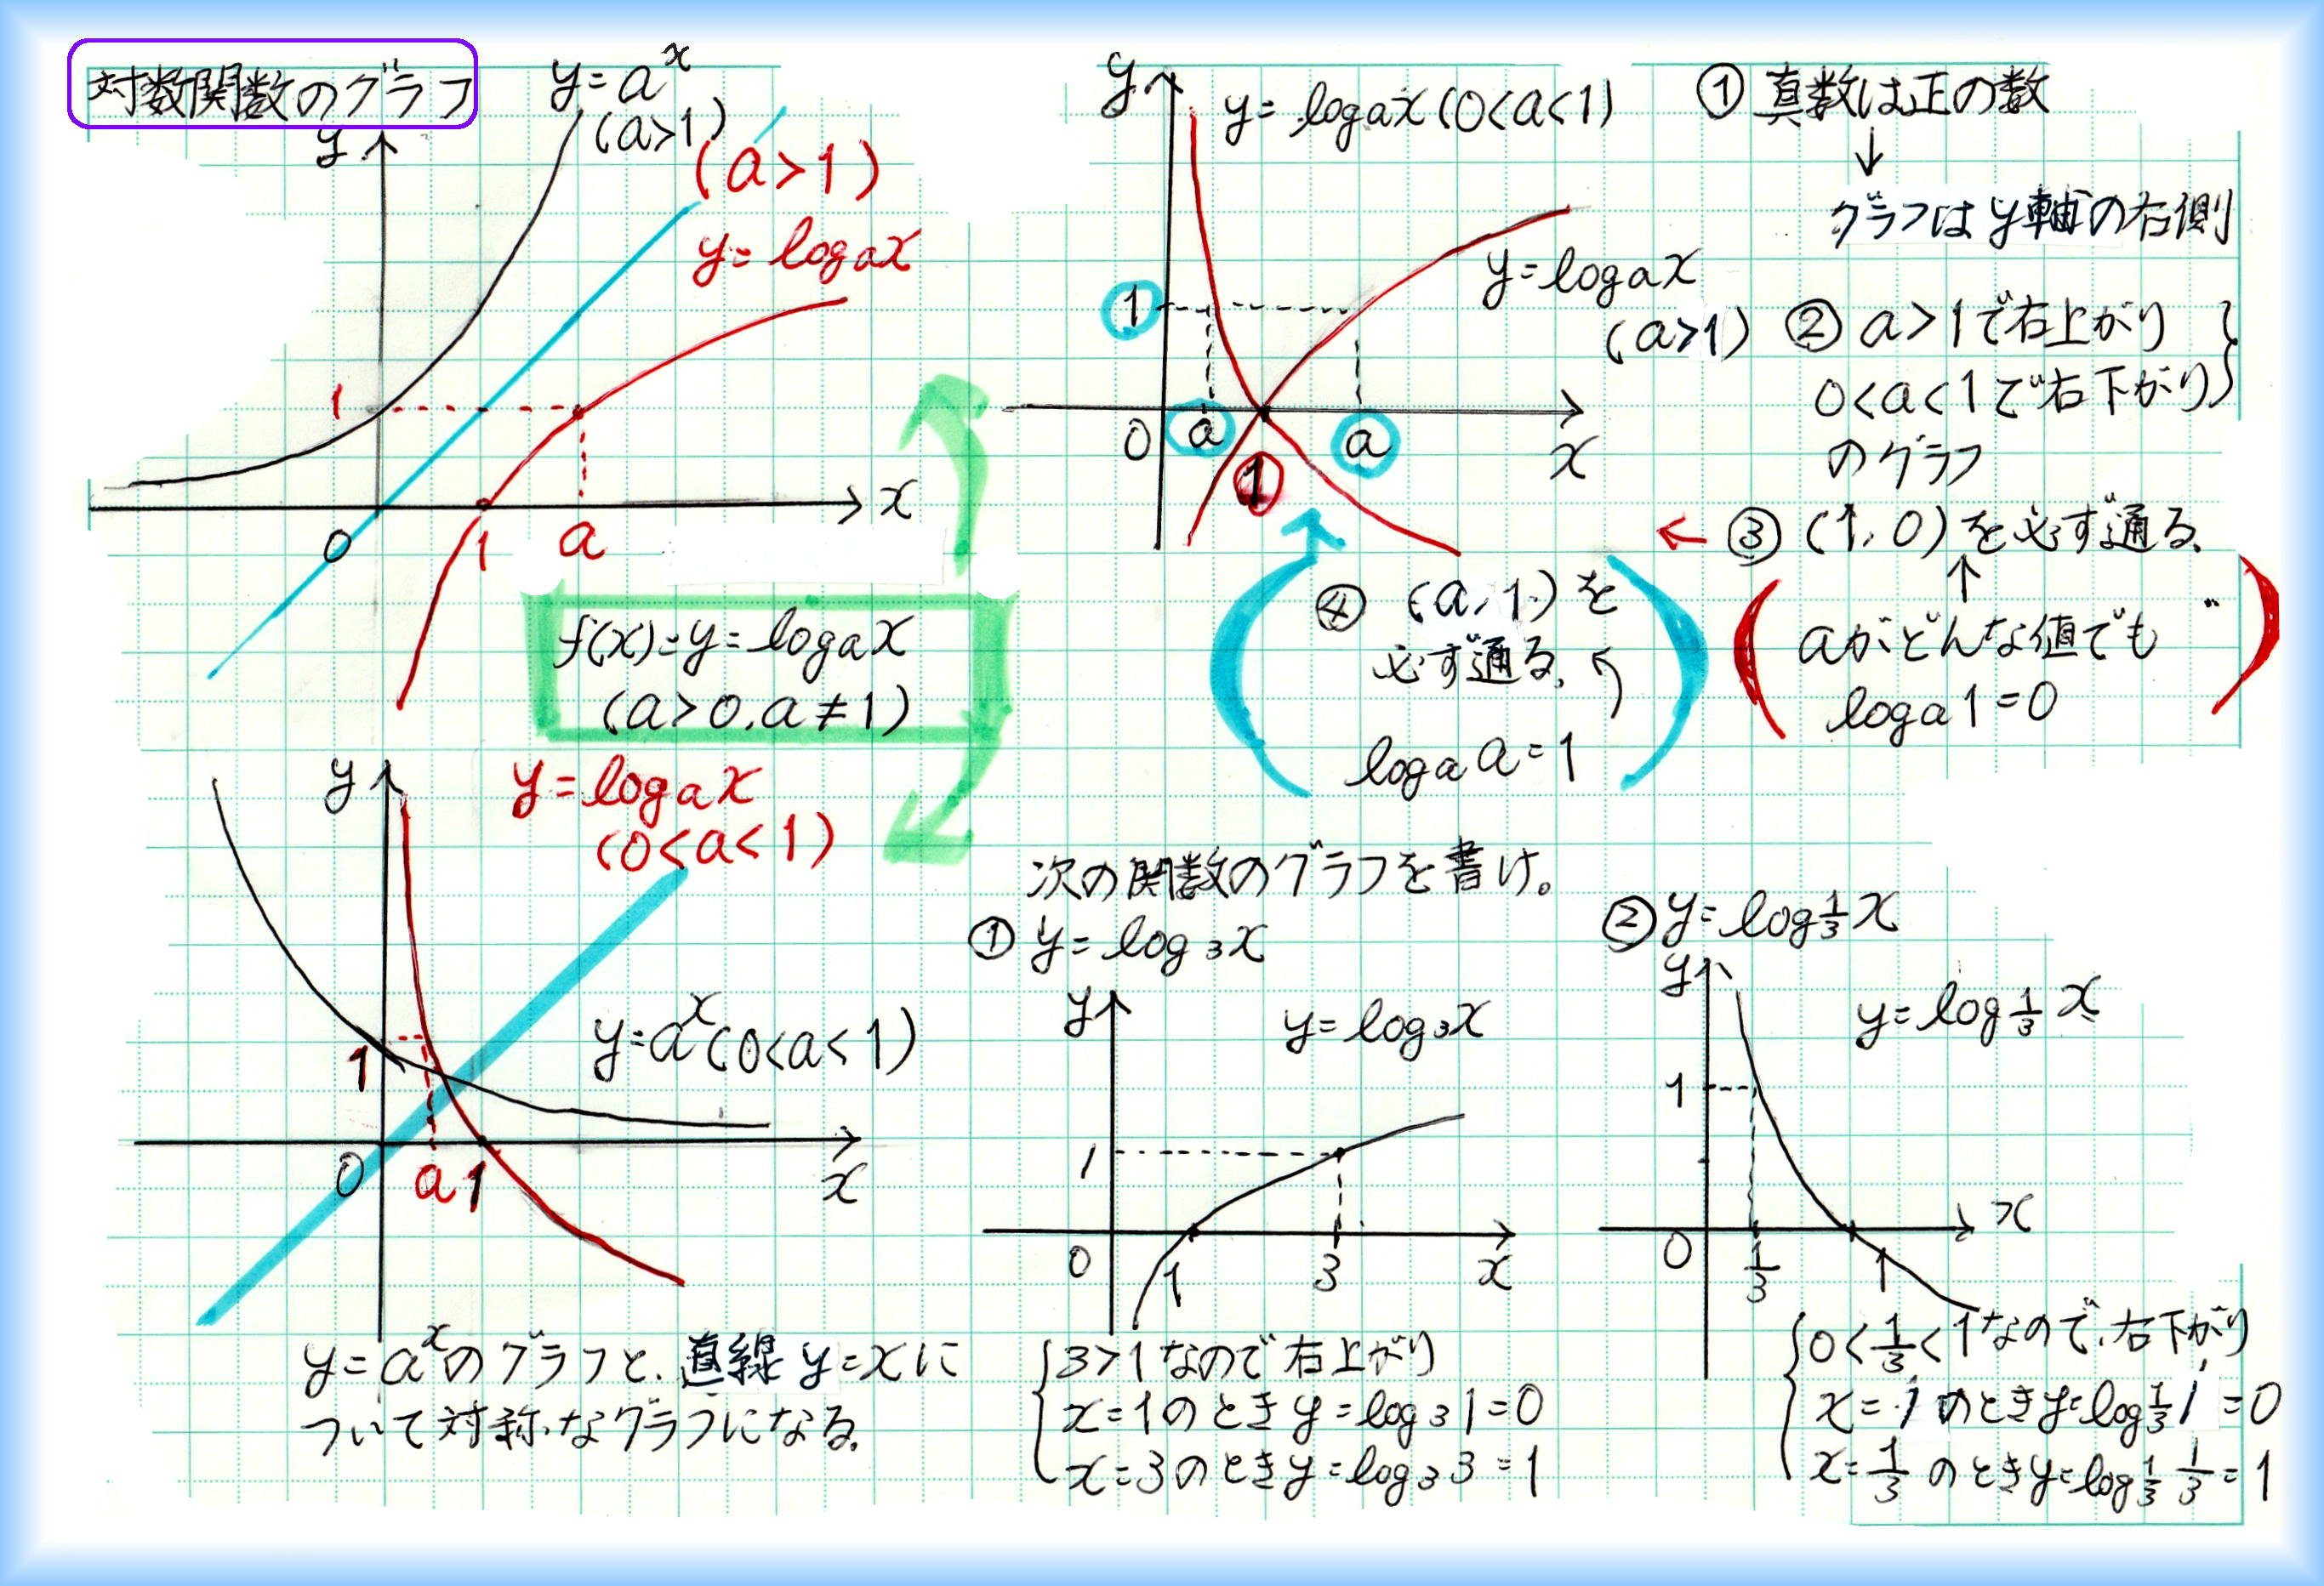 対数関数のグラフ
y=a^x
(a>1)
(a>1)
y=logax
y
1
0
1
a
x
f(x)=y=logax
(a>0,a≠1)
y
y=logax
(0<a<1)
y=a^x(0<a<1)
1
0
a
1
x
y=a^xのグラフと、直線y=xに
ついて対称なグラフになる。
y
y=logax(0<a<1)
y=logax
(a>1)
1
0
a
1
a
x
①真数は正の数
↓
グラフはy軸の右側
②a>1で右上がり
0<a<1で右下がり
のグラフ
←③(1,0)を必ず通る。
↑
aがどんな値でも
loga1=0
④(a,1)を
必ず通る。
logaa=1
次の関数のグラフを書け。
①y=log3x
y
y=log3x
1
0
1
3
x
3>1なので右上がり
x=1のときy=log31=0
x=3のときy=log33=1
②y=log1/3x
y
y=log1/3x
1
0
1/3
1
x
0<1/3<1なので、右下がり
x=1のときy=log1/31=0
x=1/3のときy=log1/3 1/3=1